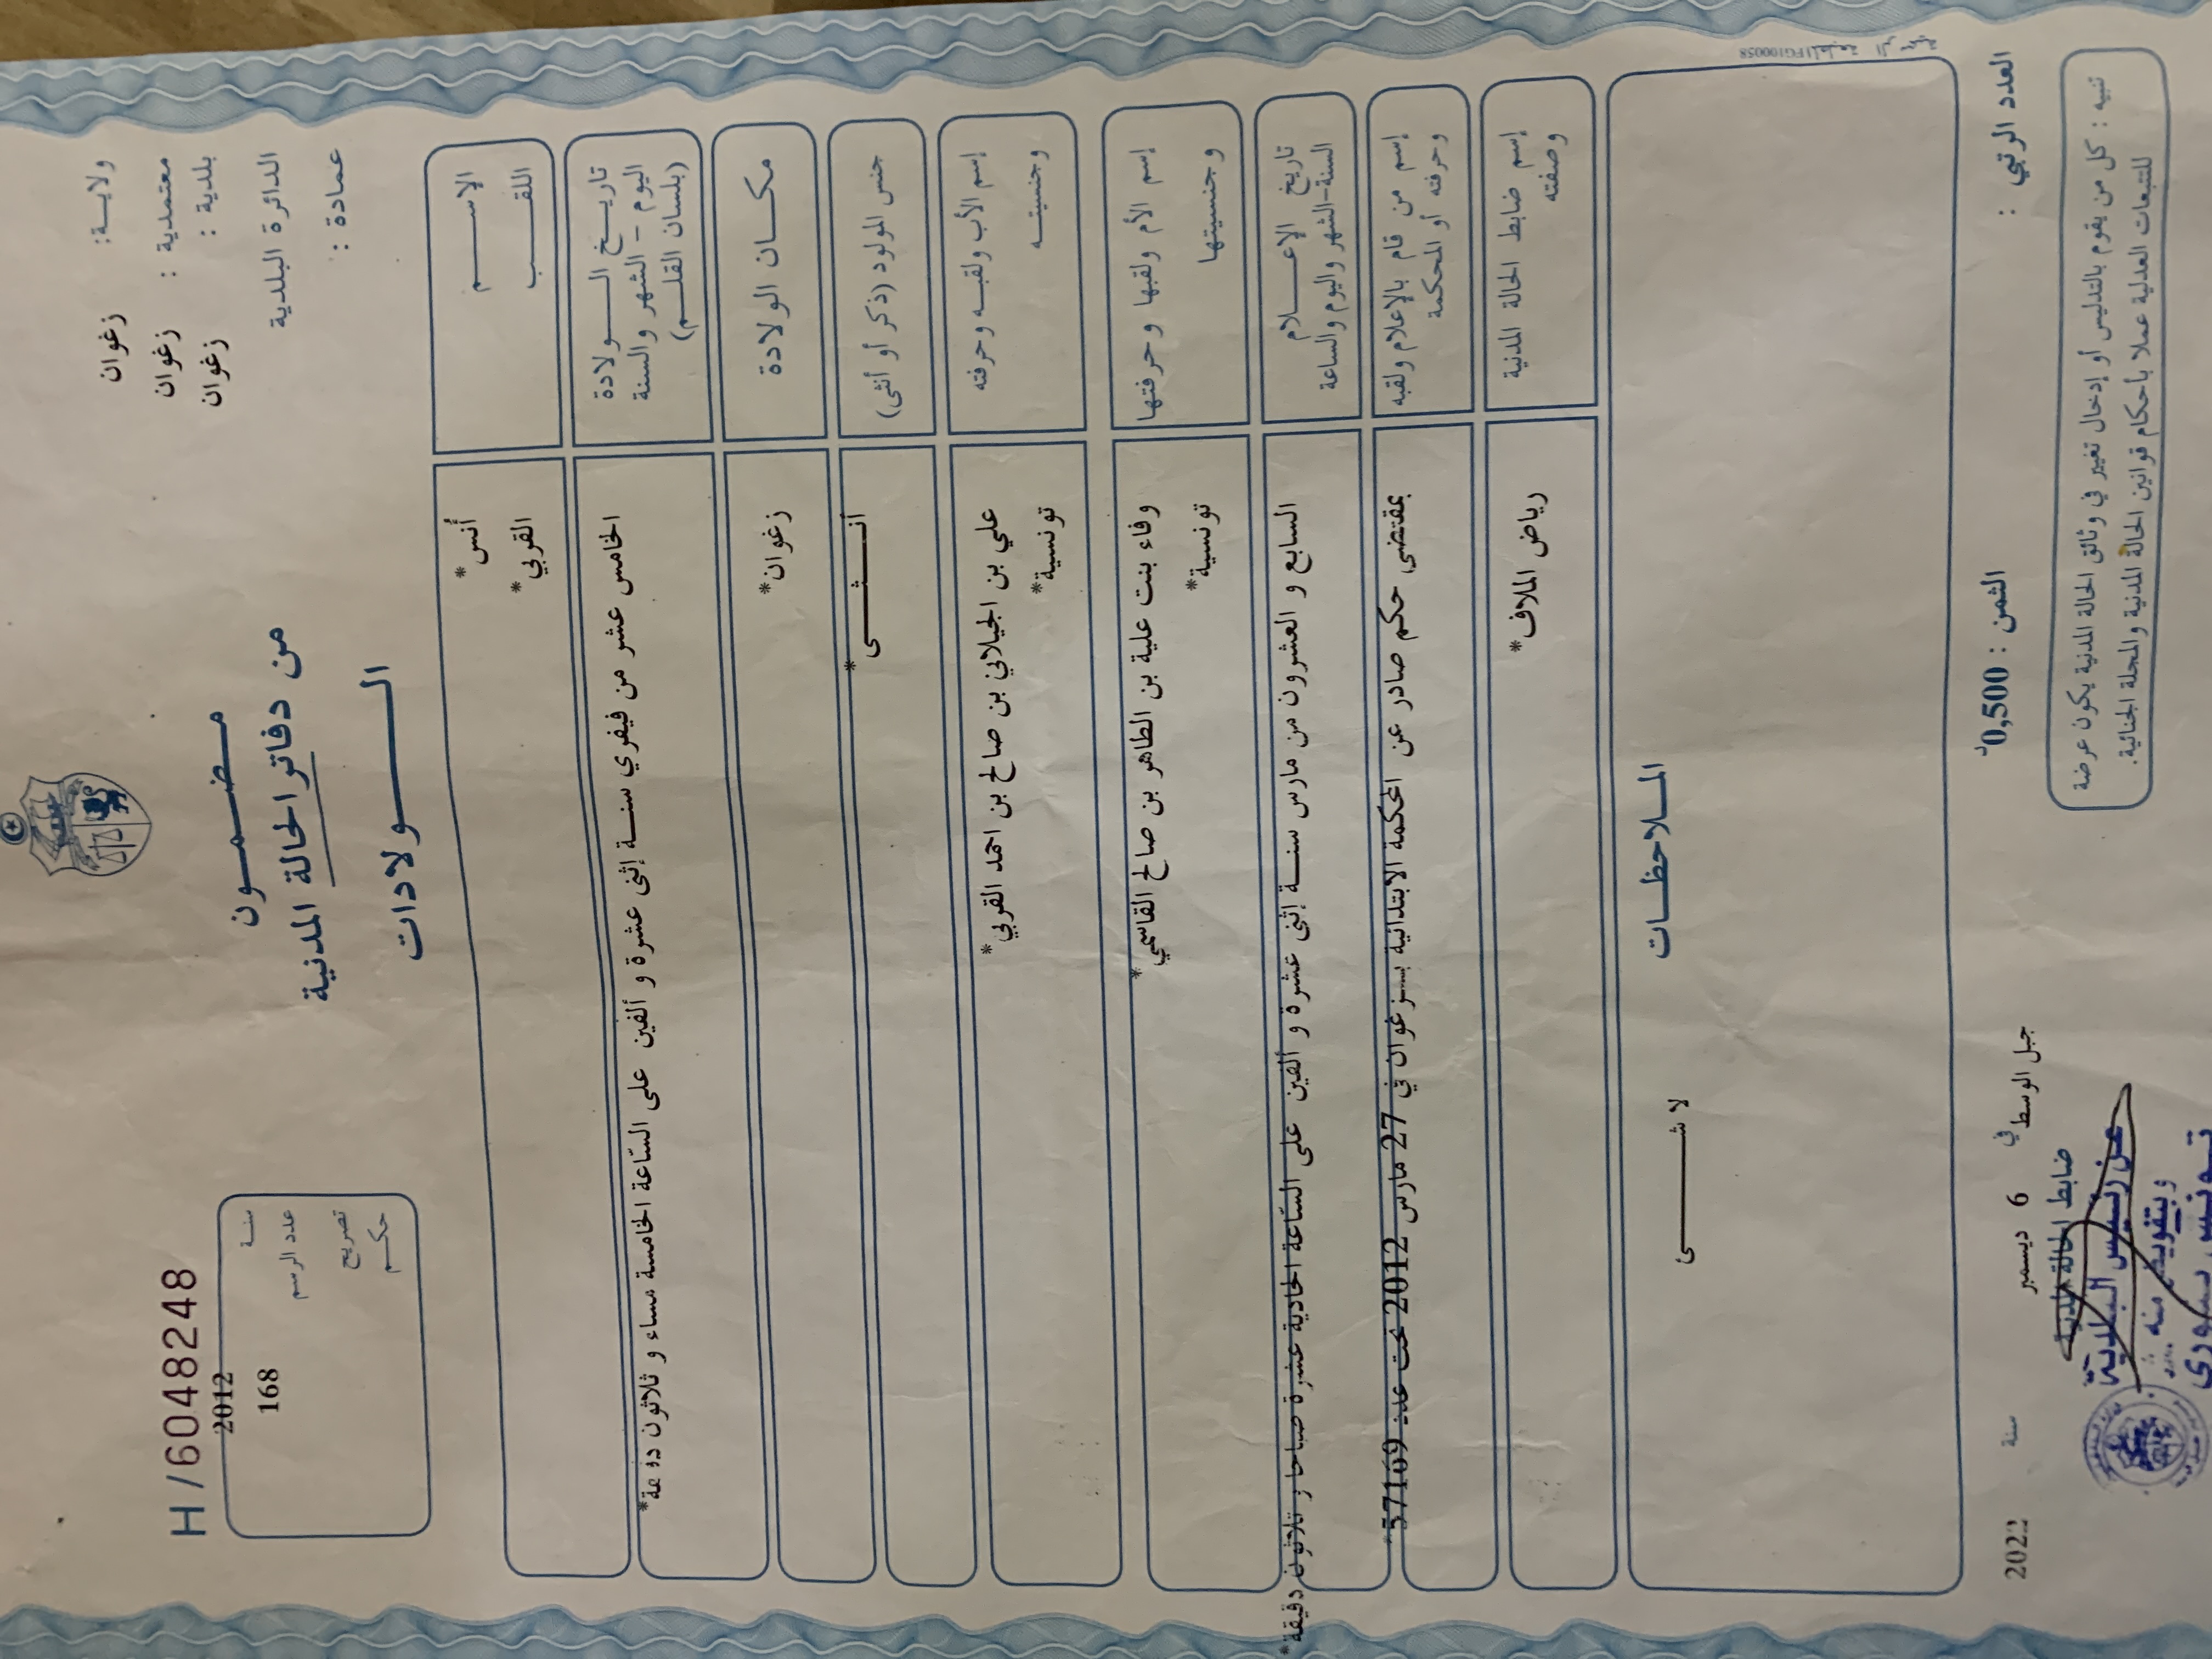 ولاية: زغوان
معتمدية : زغوان
بلدية : زغوان
الدائرة البلدية
عمادة :
مضمون
من دفاتر الحالة المدنية
الولادات
H/6048248
سنة 2012
عدد الرسم 168
تصريح
حكم
الاسم أنس*
اللقب القربي*
تاريخ الولادة
اليوم - الشهر والسنة
(بلسان القلم)
الخامس عشر من فيفري سنة إثنى عشرة و ألفين على السّاعة الخامسة مساء و ثلاثون دقيقة*
مكان الولادة زغوان*
جنس المولود (ذكر أو أنثى) أنثى*
إسم الأب ولقبه وحرفته علي بن الجيلاني بن صالح بن احمد القربي*
وجنسيته تونسية*
إسم الأم ولقبها وحرفتها وفاء بنت علية بن الطاهر بن صالح القاسمي*
وجنسيتها تونسية*
تاريخ الإعلام
السنة-الشهر واليوم والساعة
السابع و العشرون من مارس سنة إثنى عشرة و ألفين على السّاعة الحادية عشرة صباحا و ثلاثون دقيقة*
إسم من قام بالإعلام ولقبه
وحرفته أو المحكمة
بمقتضى حكم صادر عن المحكمة الابتدائية بزغوان في 27 مارس 2012 تحت عدد 57169*
إسم ضابط الحالة المدنية
وصفته
رياض الملاف*
الملاحظات
لا شىء
المطبعة الرسمية FG100058
العدد الرتبي :
الثمن : 0,500د
جبل الوسط في 6 ديسمبر سنة 2022
ضابط الحالة المدنية
عن رئيس البلدية
وبتفويض منه
تنبيه : كل من يقوم بالتدليس أو إدخال تغيير في وثائق الحالة المدنية يكون عرضة
للتتبعات العدلية عملا بأحكام قوانين الحالة المدنية والمجلة الجنائية.